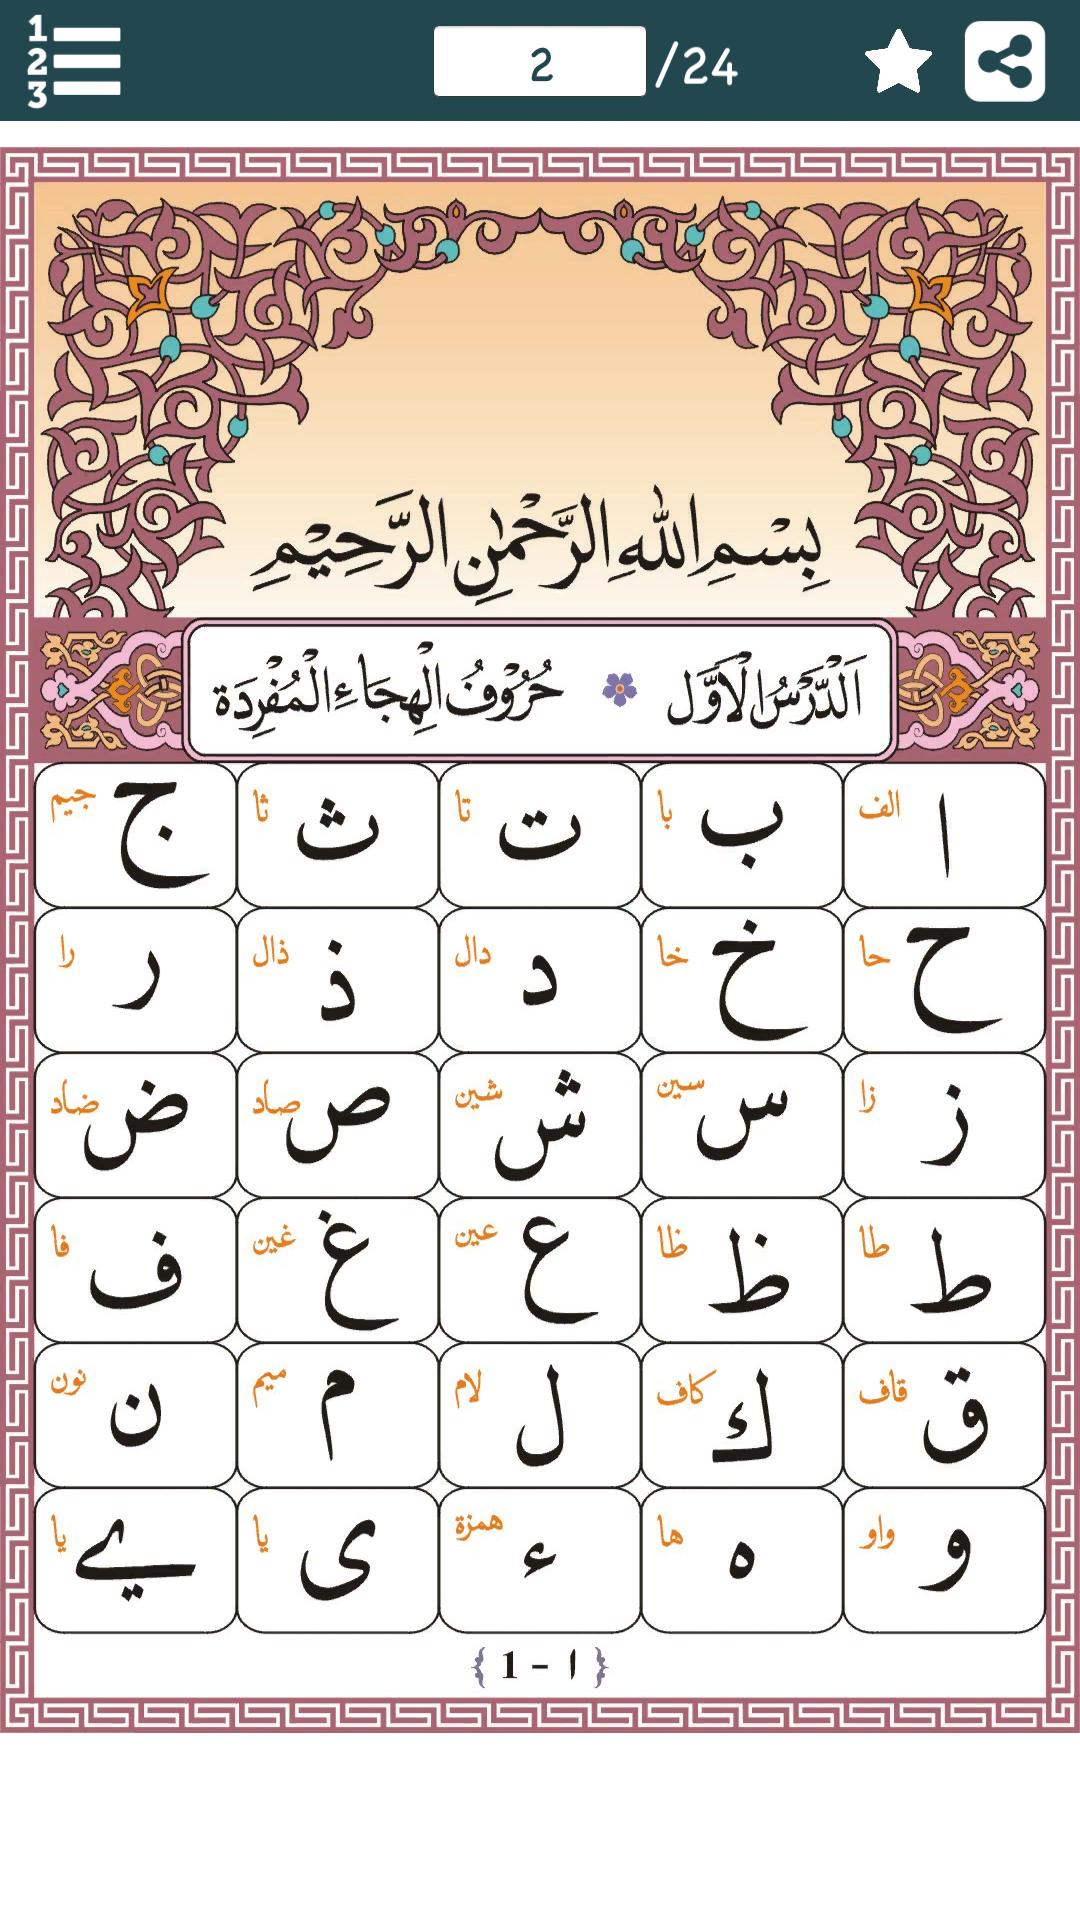 1
2
3
2 /24
بِسْمِ اللهِ الرَّحْمٰنِ الرَّحِيْمِ
اَلدَّرْسُ الْاَوَّل حُرُوْفُ الْهِجَاءِ الْمُفْرَدَة
ا الف ب با ت تا ث ثا ج جيم
ح حا خ خا د دال ذ ذال ر را
ز زا س سين ش شين ص صاد ض ضاد
ط طا ظ ظا ع عين غ غين ف فا
ق قاف ك كاف ل لام م ميم ن نون
و واو ه ها ء همزة ى يا ے يا
{ 1 - ١ }